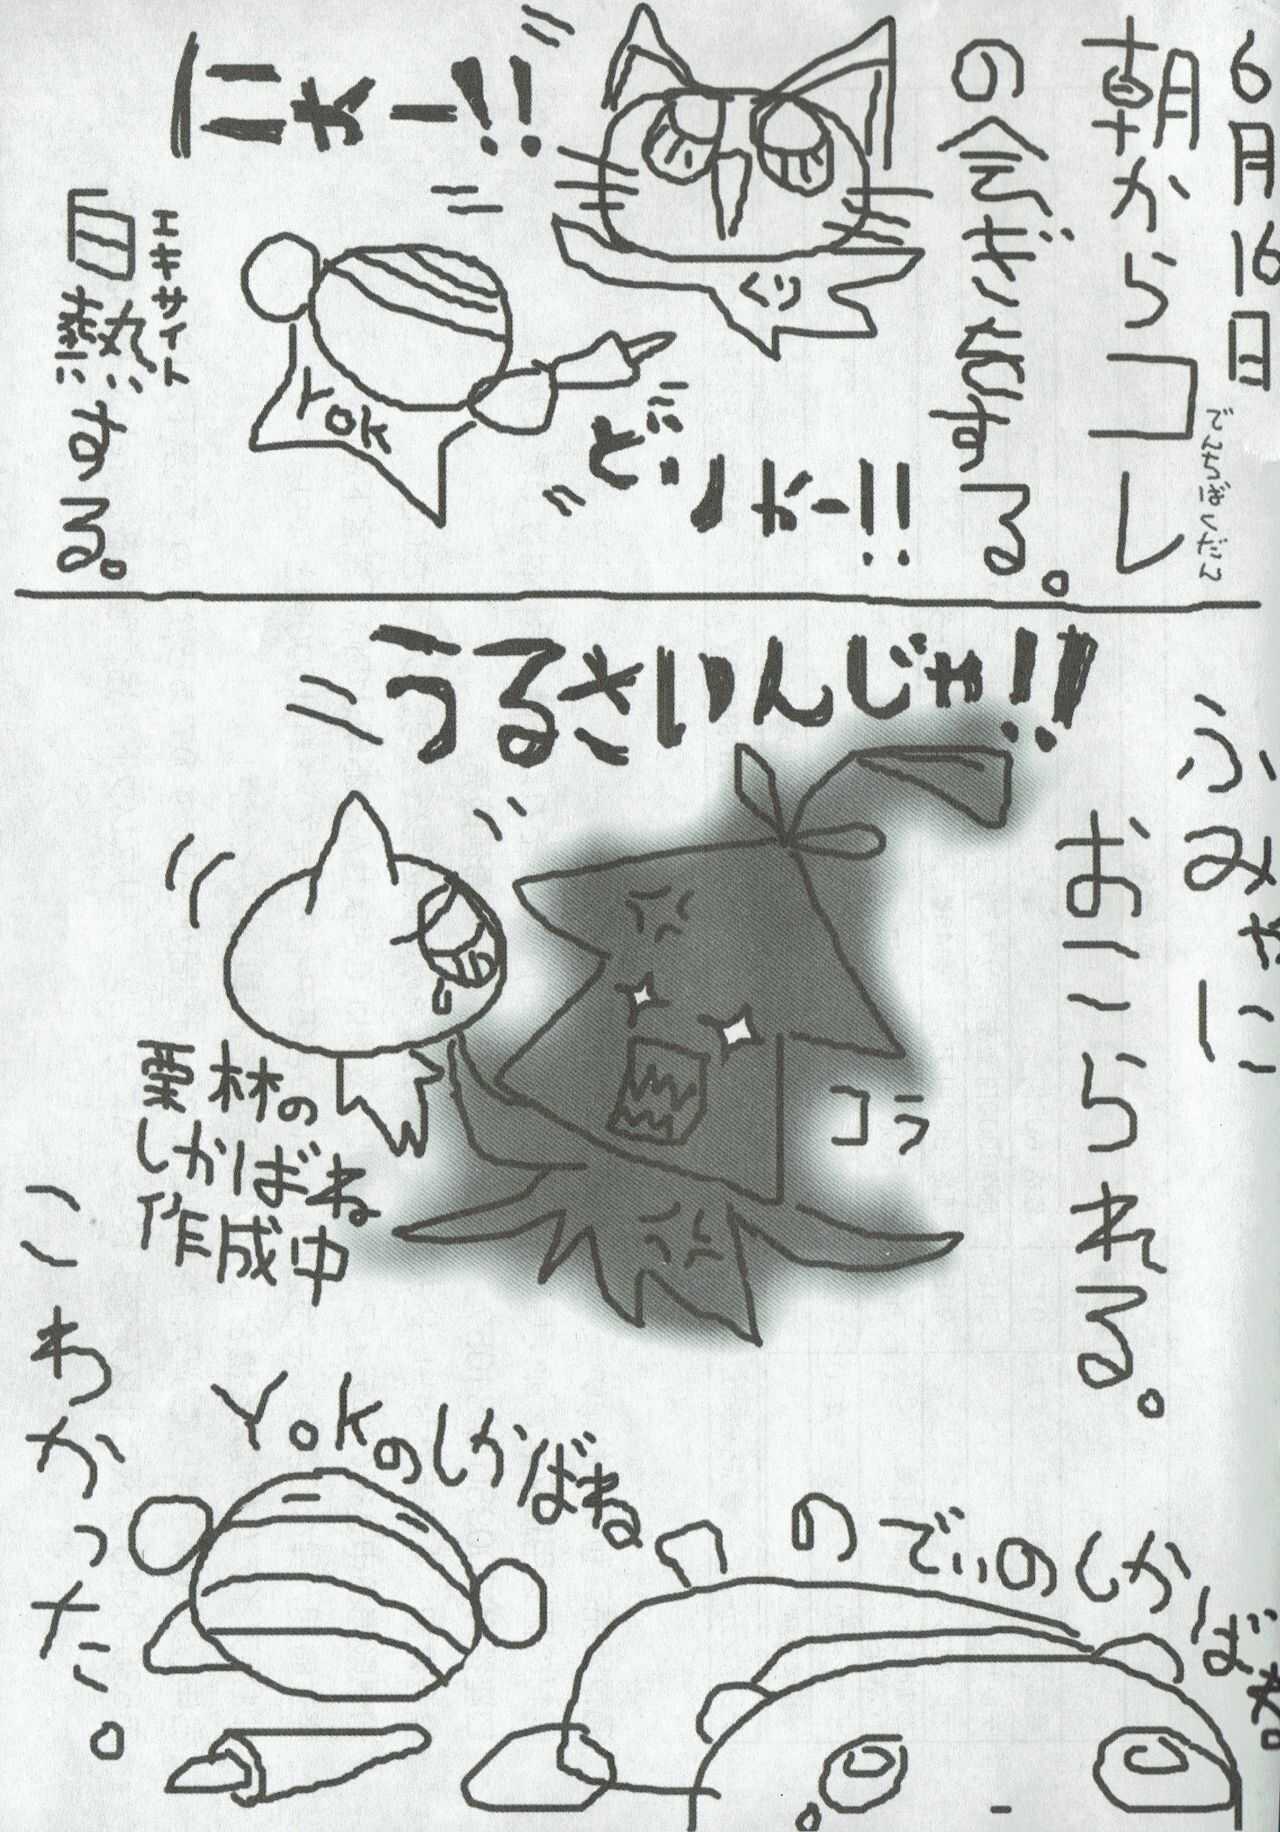 6月16日
朝からコレ
でんちばくだん
するる。
にょー!!
くり
Yok
どりゃー!!
エキサイト
白熱する。
うるさいんじゃ!!
ふみゃに
おこられる。
コラ
栗林の
しかばね
作成中
Yokのしかばね
のでぃのしかばね
こわかった。